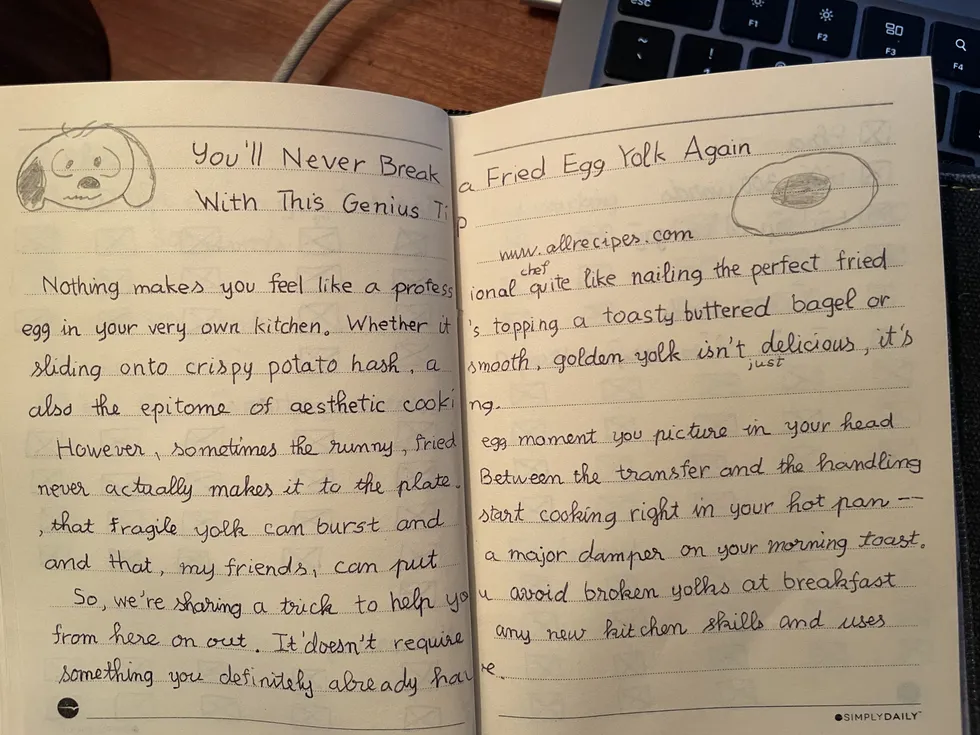 esc
F1
F2
F3
F4
~
!
You'll Never Break a Fried Egg Yolk Again
With This Genius Tip
www.allrecipes.com
Nothing makes you feel like a professional chef quite like nailing the perfect fried
egg in your very own kitchen. Whether it's topping a toasty buttered bagel or
sliding onto crispy potato hash, a smooth, golden yolk isn't just delicious, it's
also the epitome of aesthetic cooking.
However, sometimes the runny, fried egg moment you picture in your head
never actually makes it to the plate. Between the transfer and the handling
, that fragile yolk can burst and start cooking right in your hot pan --
and that, my friends, can put a major damper on your morning toast.
So, we're sharing a trick to help you avoid broken yolks at breakfast
from here on out. It'doesn't require any new kitchen skills and uses
something you definitely already have.
SIMPLYDAILY